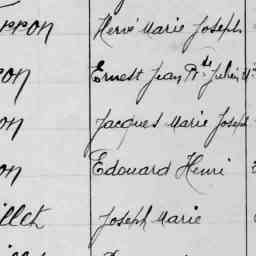 rron Hervé Marie Joseph
on Ernest Jean Bte Julien
on Jacques Marie Joseph
on Edouard Henri
illet Joseph Marie